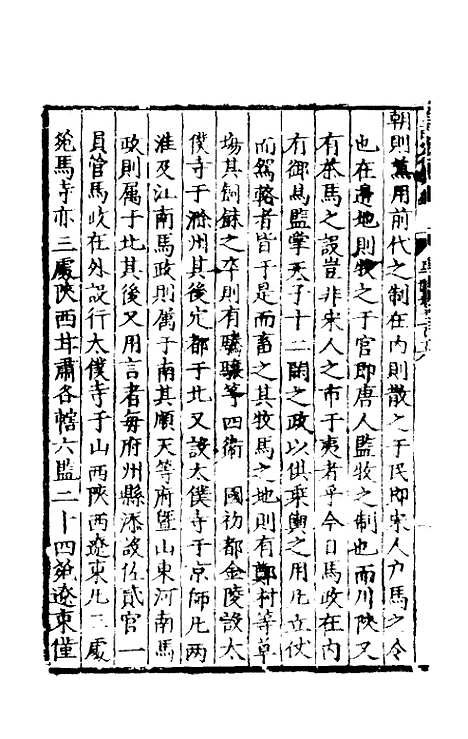 朝則兼用前代之制在内則散之于民即宋人户馬之令
也在邊地則牧之于官即唐人監牧之制也而川陝又
有茶馬之設豈非宋人之市于夷者乎今日馬政在内
有御馬監掌天子十二閑之政以供乘輿之用凡立仗
而駕輅者皆于是而畜之其牧馬之地則有鄭村等草
場其飼餘之卒則有驤驤等四衛　國初都金陵設太
僕寺于滁州其後定都于北又設太僕寺于京師凡兩
淮及江南馬政則属于南其順天等府暨山東河南馬
政則属于北其後又用言者每府州縣添設佐貳官一
員管馬政在外設行太僕寺于山西陝西遼東凡三處
苑馬寺亦三處陝西甘肅各轄六監二十四苑遼東僅